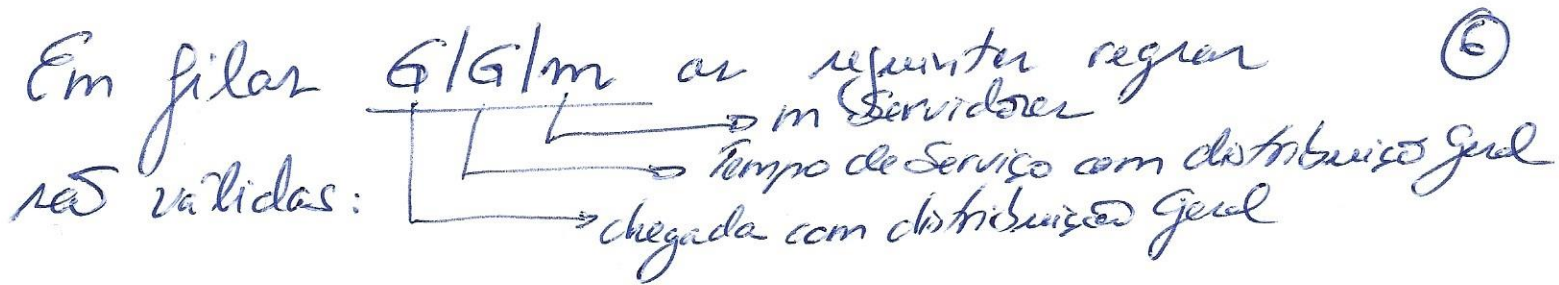 Em filas G/G/m as seguintes regras 6
m Servidores
Tempo de Serviço com distribuição Geral
são válidas:
chegada com distribuição Geral